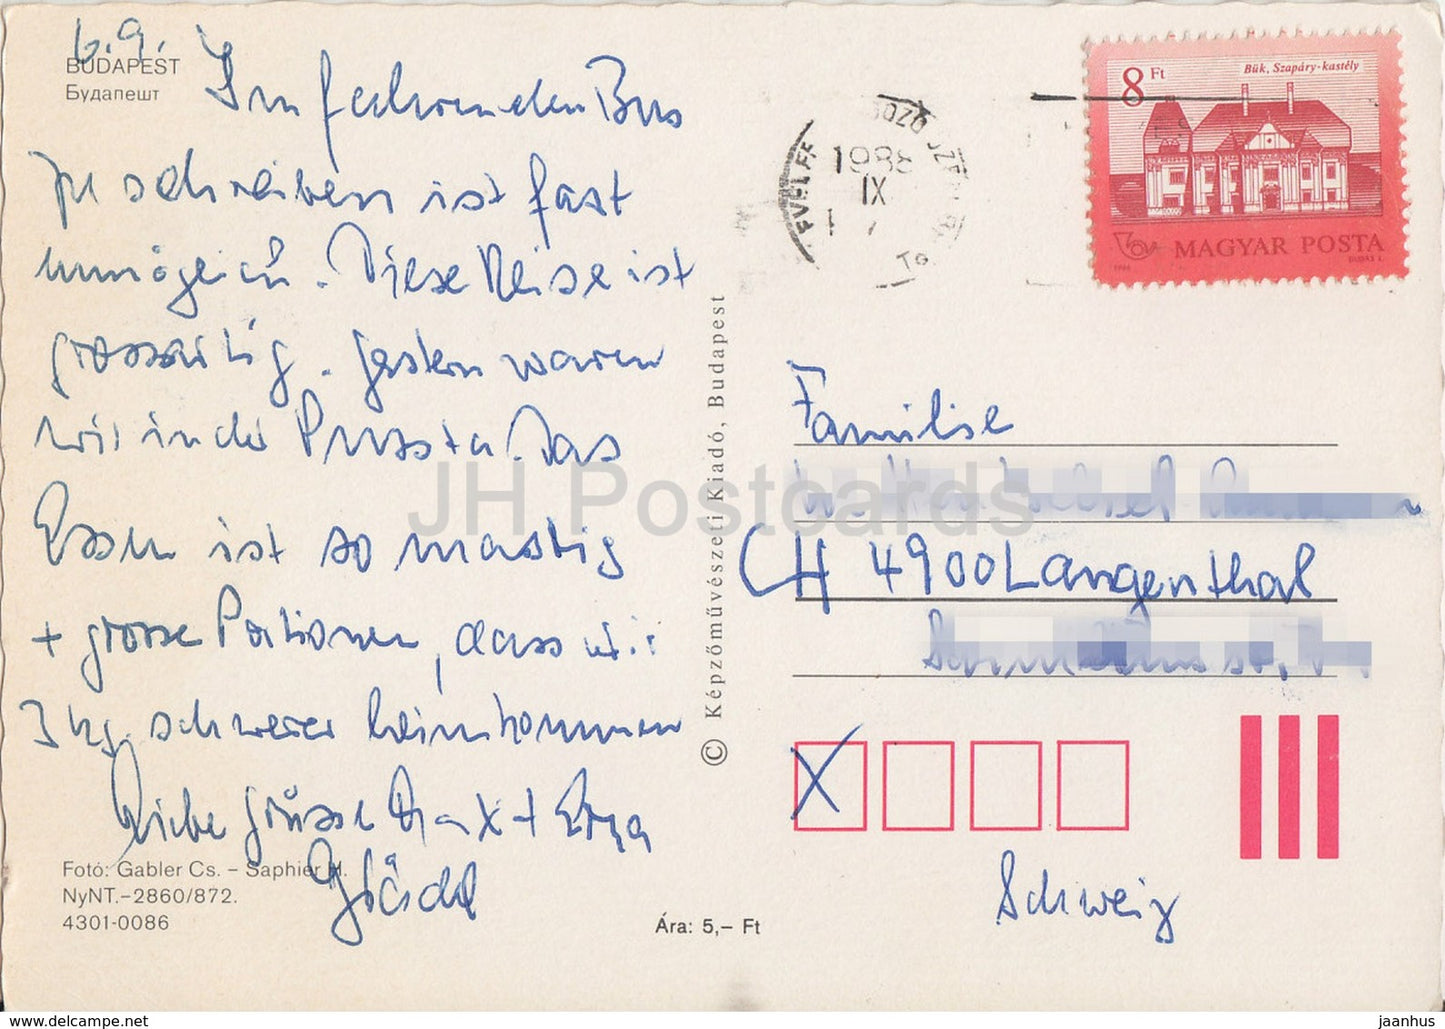 6.9.
BUDAPEST
Будапешт
Im fahrenden Bus
zu schreiben ist fast
unmöglich. Diese Reise ist
grossartig. Gestern waren
wir in der Puszta. Das
Essen ist so mastig
+ grosse Portionen, dass wir
3 kg. schwerer heimkommen
Liebe Grüsse Max + Erna
Foto: Gabler Cs. – Saphier H.
NyNT.–2860/872.
4301-0086
Ára: 5,– Ft
© Képzőművészeti Kiadó, Budapest
8 Ft
Bük, Szapáry-kastély
MAGYAR POSTA
1986
BUDAS L.
1988
IX
Familie
CH 4900 Langenthal
Schweiz
JH Postcards
www.delcampe.net
jaanhus